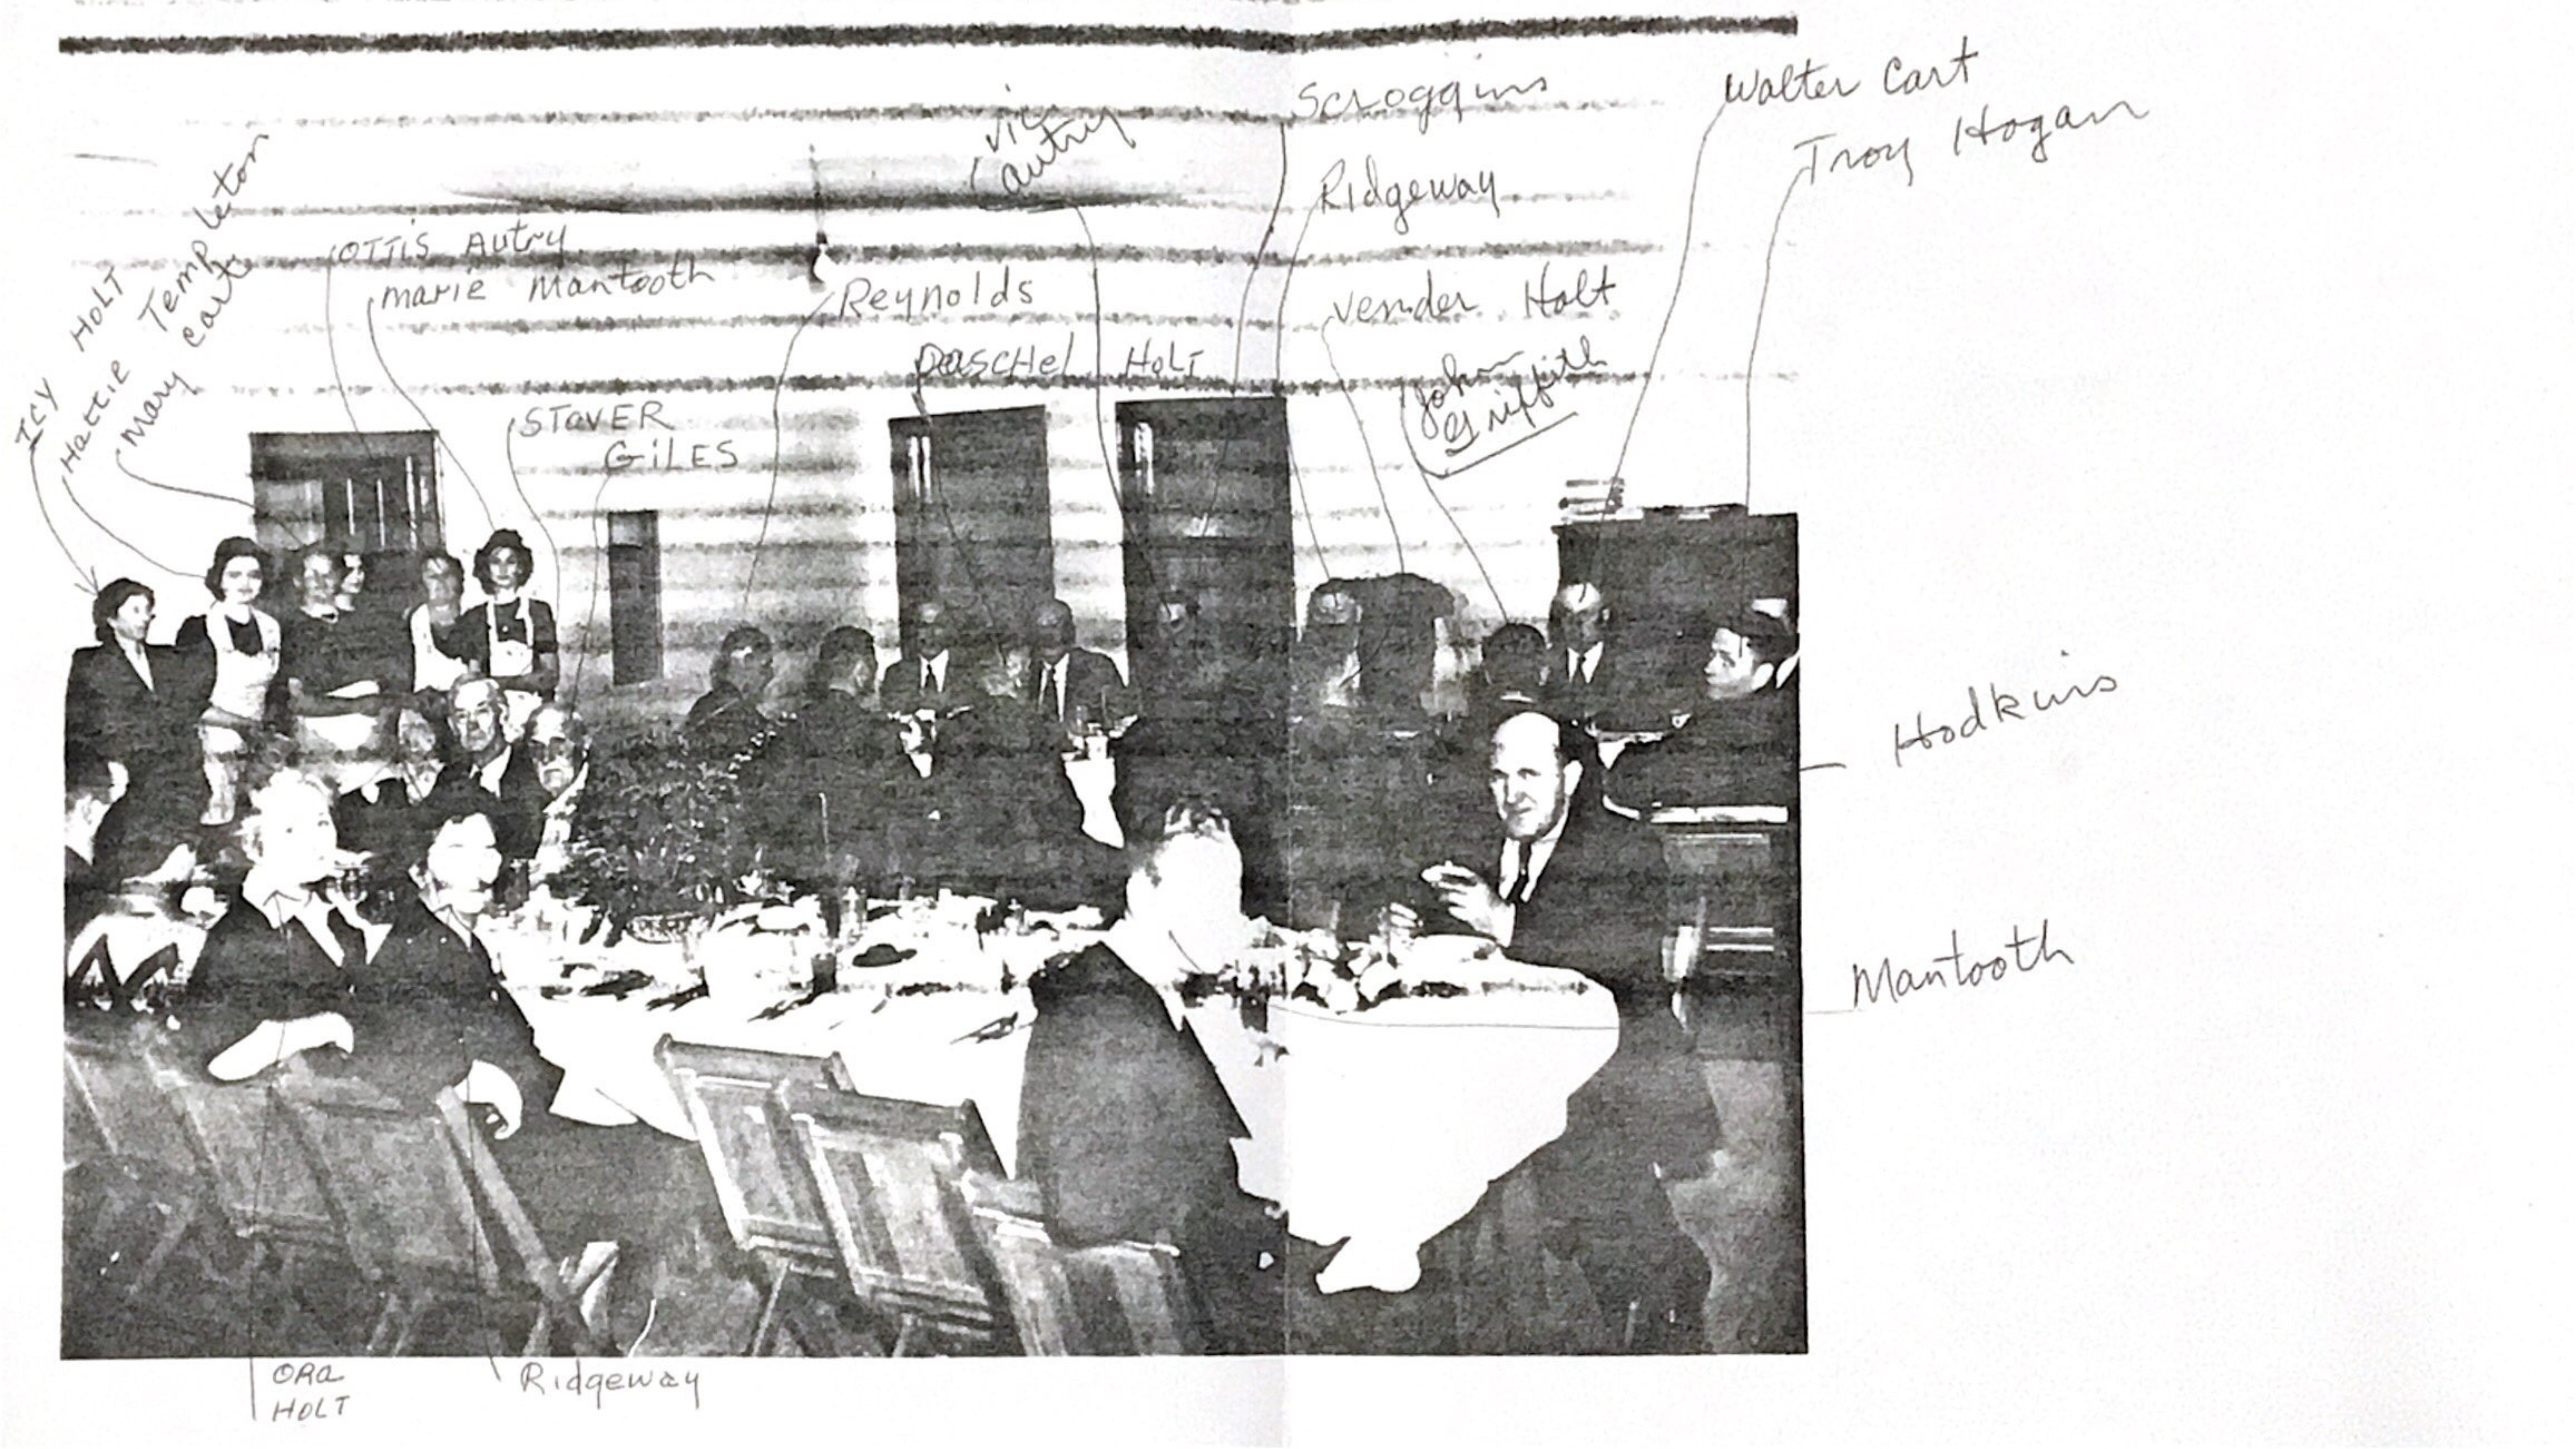 Scroggins
Walter Cart
Troy Hogan
Vic
Autry
Ridgeway
ICY HOLT
Hattie Templeton
Mary Carte
OTTIS AUTRY
marie Mantooth
Reynolds
Vernder Holt
PASCHEL HOLT
John
Griffith
STOVER
GILES
Hodkins
Mantooth
ORA
HOLT
Ridgeway